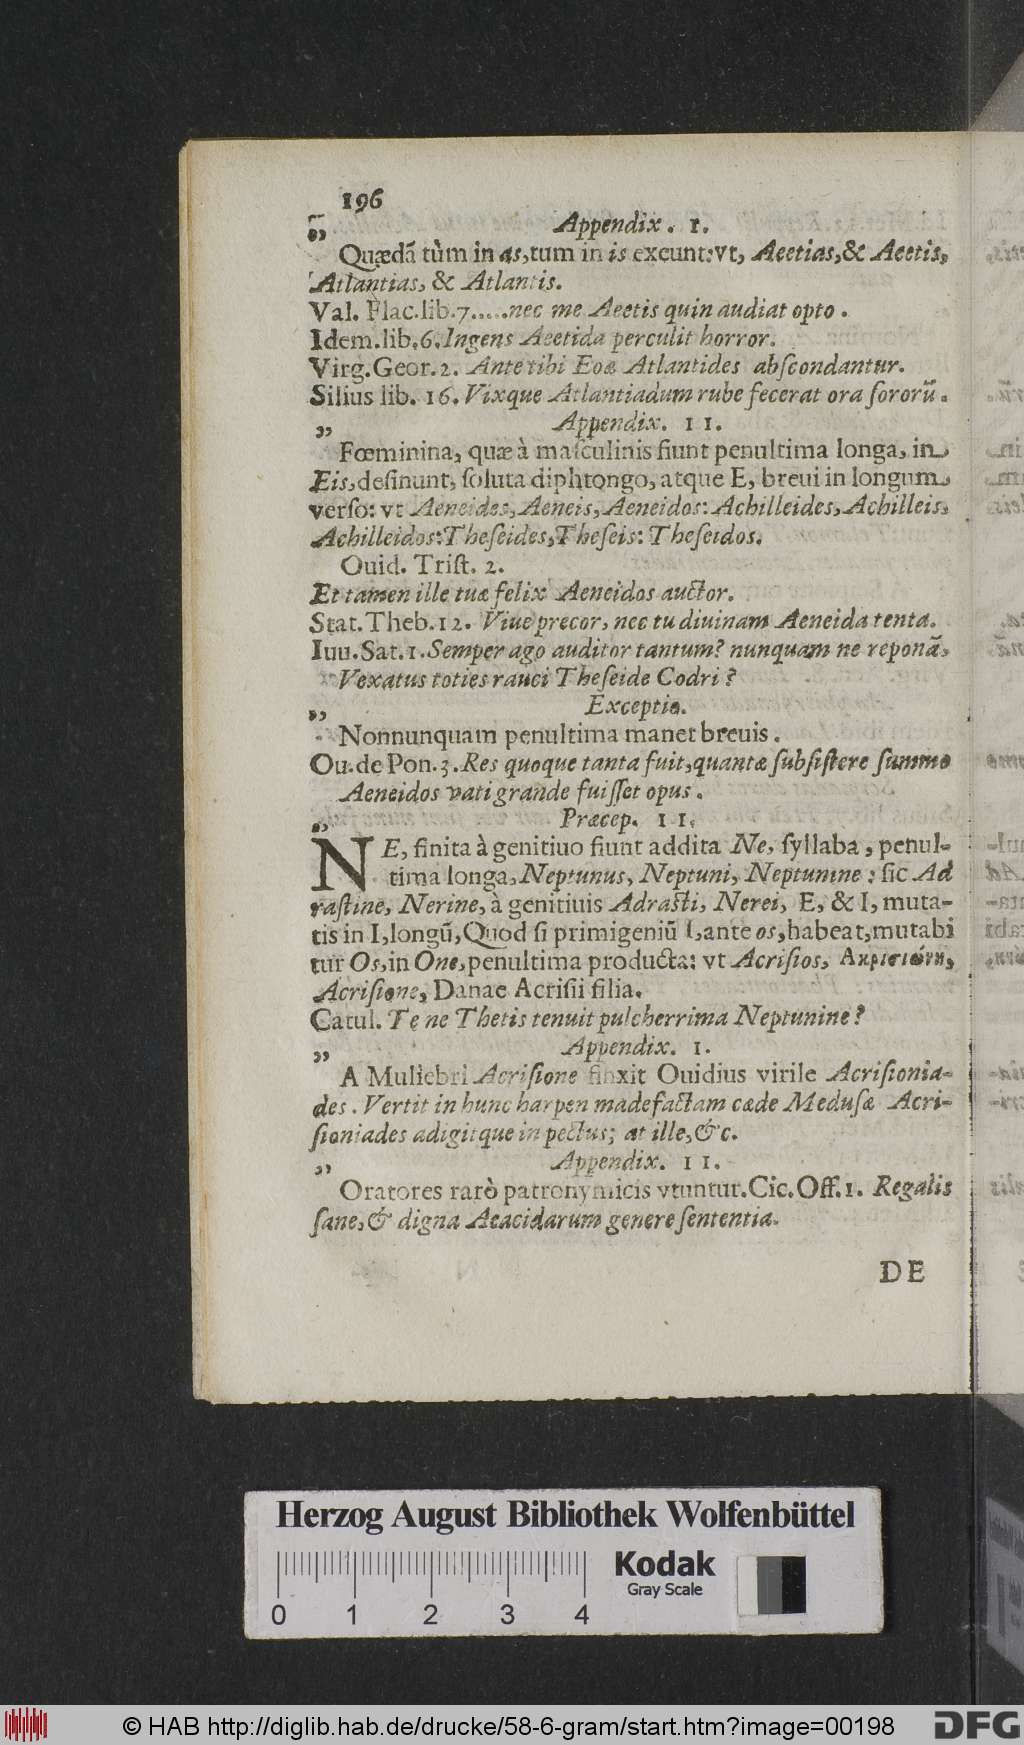 196
Appendix. I.
„
Quædā tùm in as, tum in is exeunt: vt, Aeetias, & Aeetis,
Atlantias, & Atlantis.
Val. Flac. lib. 7.....nec me Aeetis quin audiat opto.
Idem. lib. 6. Ingens Aeetida perculit horror.
Virg. Geor. 2. Ante tibi Eoæ Atlantides abſcondantur.
Silius lib. 16. Vixque Atlantiadum rube fecerat ora ſororū.
Appendix. II.
„
Fœminina, quæ à maſculinis fiunt penultima longa, in
Eis, deſinunt, ſoluta diphtongo, atque E, breui in longum
verſo: vt Aeneides, Aeneis, Aeneidos: Achilleides, Achilleis,
Achilleidos: Theſeides, Theſeis: Theſeidos.
Ouid. Triſt. 2.
Et tamen ille tuæ felix Aeneidos auctor.
Stat. Theb. 12. Viue precor, nec tu diuinam Aeneida tenta.
Iuu. Sat. 1. Semper ago auditor tantum? nunquam ne reponā,
Vexatus toties rauci Theſeide Codri?
Exceptio.
„
Nonnunquam penultima manet breuis.
Ou. de Pon. 3. Res quoque tanta fuit, quantæ ſubſiſtere ſummo
Aeneidos vati grande fuiſſet opus.
Præcep. II.
„
NE, finita à genitiuo fiunt addita Ne, ſyllaba, penul-
tima longa, Neptunus, Neptuni, Neptunine: ſic Ad
raſtine, Nerine, à genitiuis Adraſti, Nerei, E, & I, muta-
tis in I, longū, Quod ſi primigeniū I, ante os, habeat, mutabi
tur Os, in One, penultima producta: vt Acriſios, Ακρισιώνη,
Acriſione, Danae Acriſii filia.
Catul. Te ne Thetis tenuit pulcherrima Neptunine?
Appendix. I.
„
A Muliebri Acriſione finxit Ouidius virile Acriſionia-
des. Vertit in hunc harpen madefactam cæde Meduſæ Acri-
ſioniades adigitque in pectus; at ille, &c.
Appendix. II.
„
Oratores rarò patronymicis vtuntur. Cic. Off. 1. Regalis
ſane, & digna Aeacidarum genere ſententia.
DE
Herzog August Bibliothek Wolfenbüttel
Kodak
Gray Scale
0 1 2 3 4
© HAB http://diglib.hab.de/drucke/58-6-gram/start.htm?image=00198
DFG